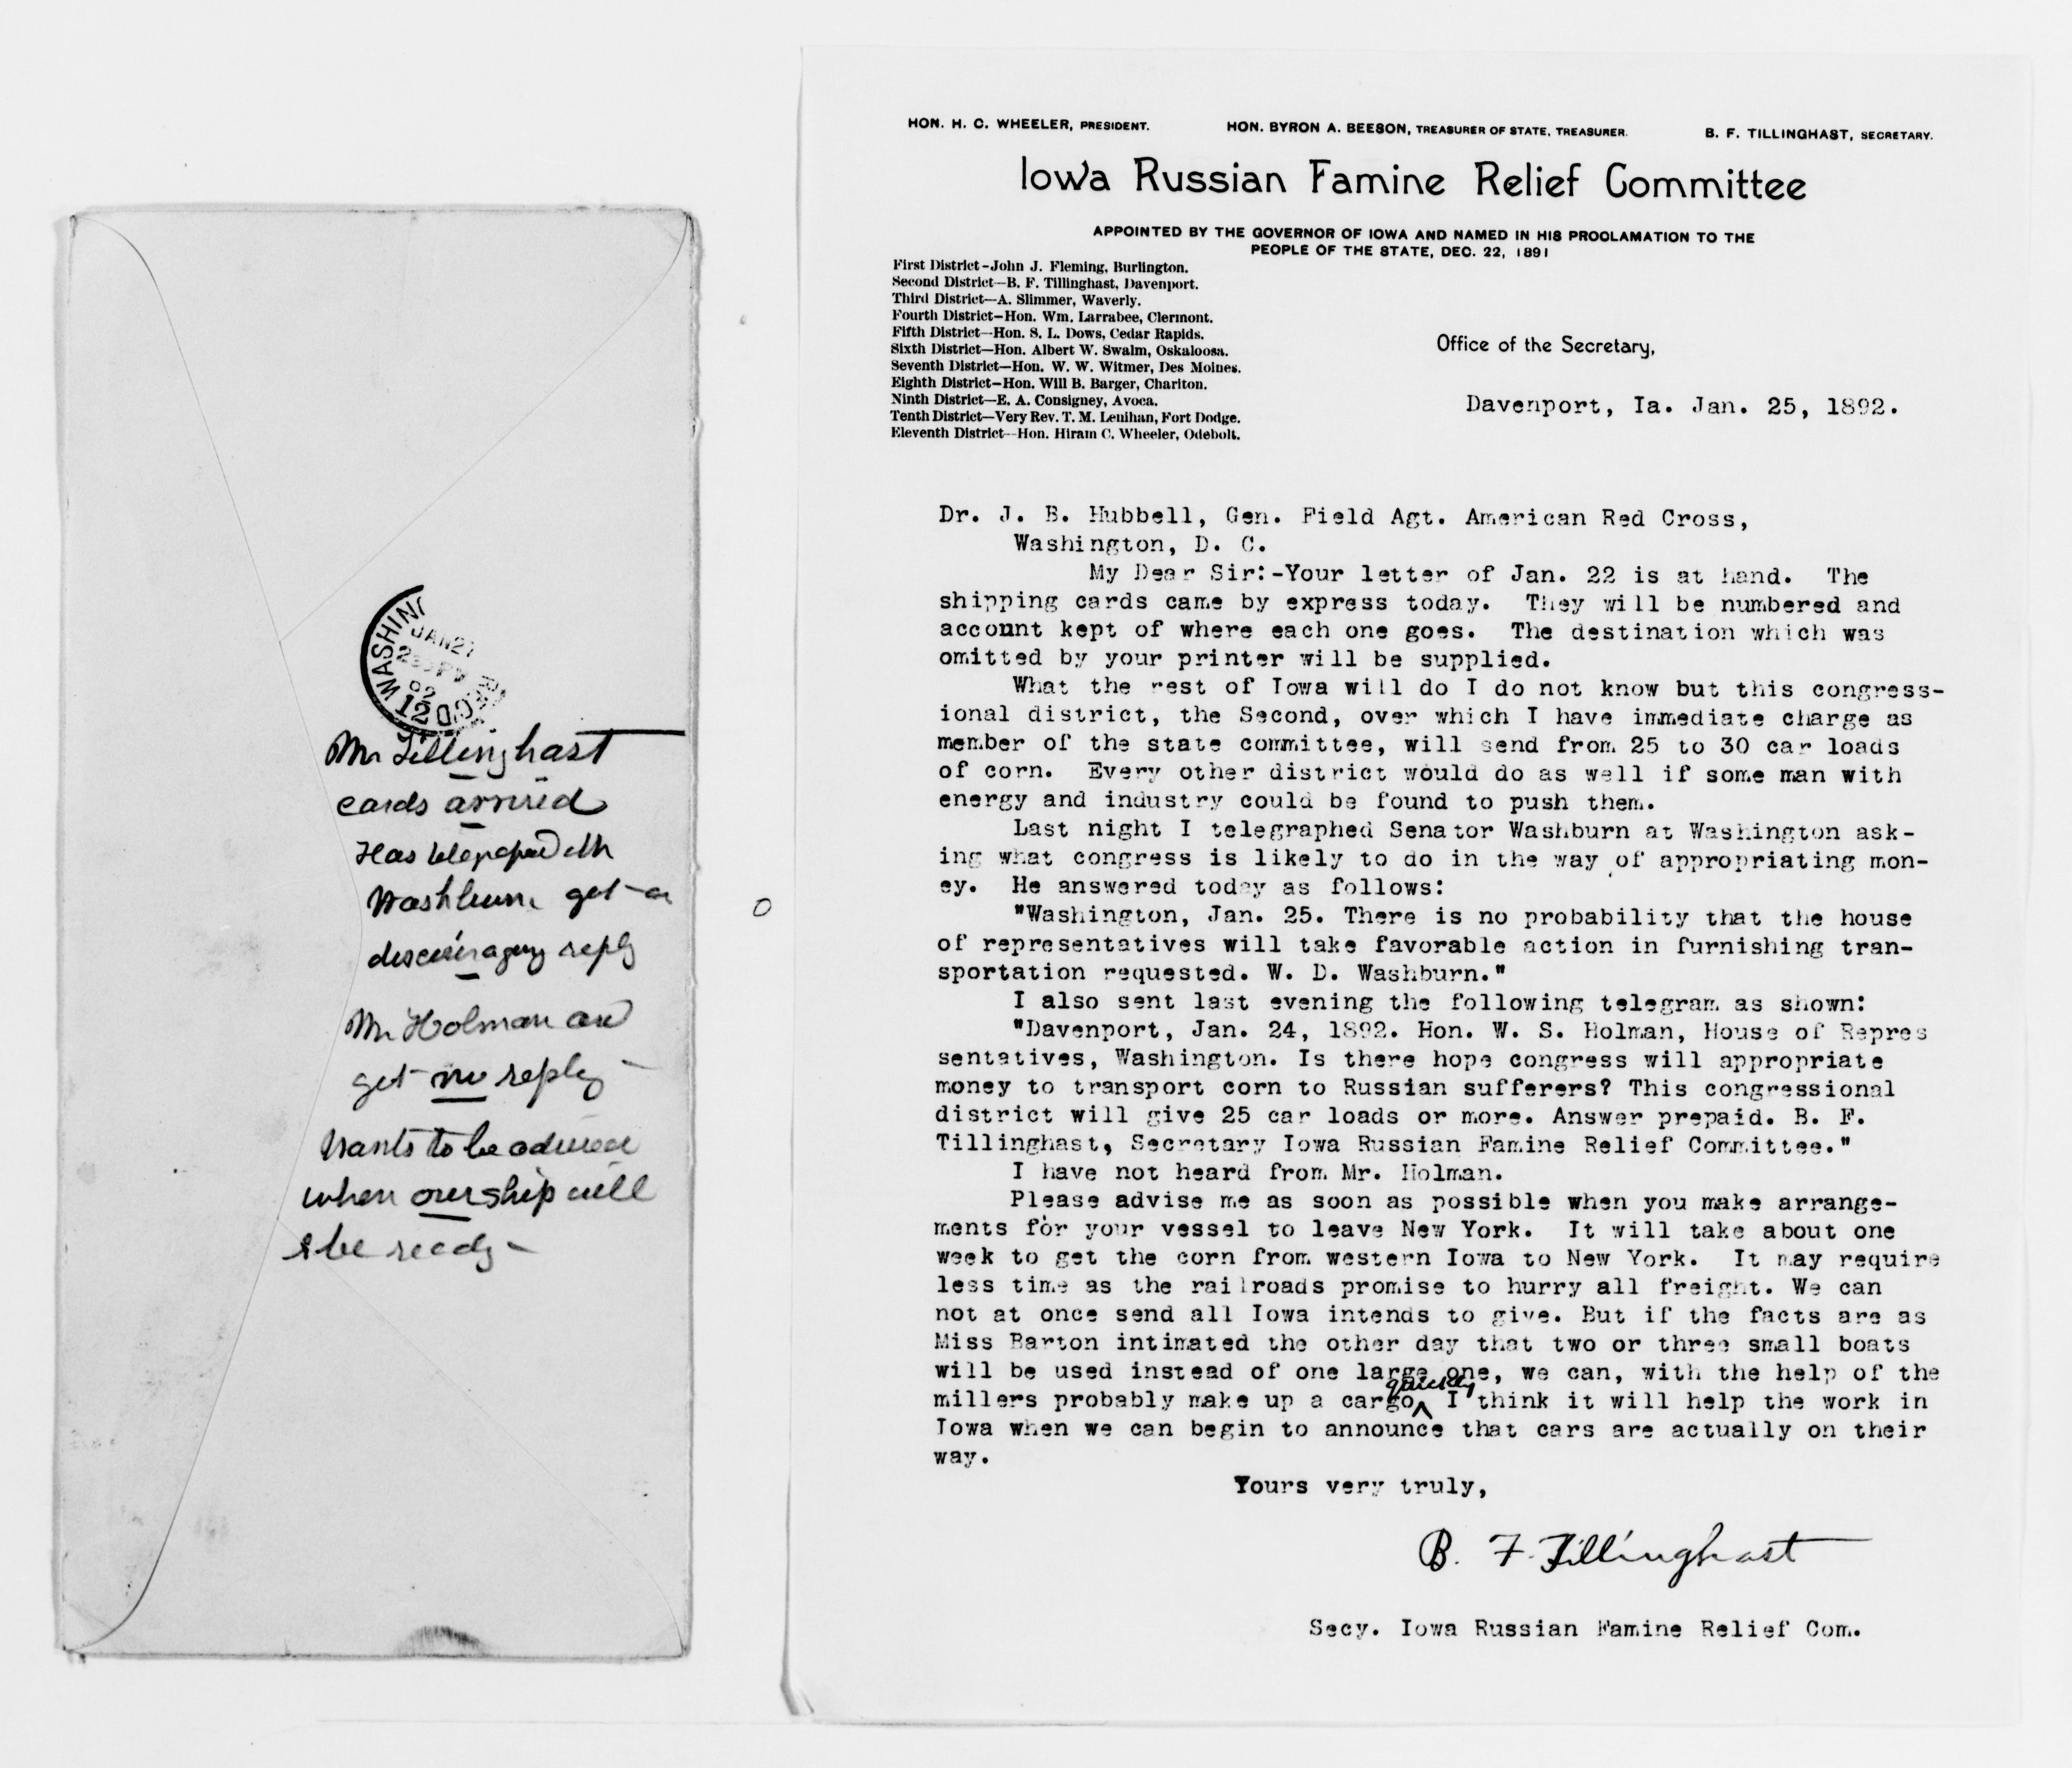 WASHING
JAN 27
92
REC'D
12
Mr Tillinghast
cards arrived
Has telegraphed Mr
Washburn get a
discouraging reply
Mr Holman and
get no reply -
Wants to be advised
when our ship will
be ready -
HON. H. C. WHEELER, PRESIDENT. HON. BYRON A. BEESON, TREASURER OF STATE, TREASURER. B. F. TILLINGHAST, SECRETARY.
Iowa Russian Famine Relief Committee
APPOINTED BY THE GOVERNOR OF IOWA AND NAMED IN HIS PROCLAMATION TO THE
PEOPLE OF THE STATE, DEC. 22, 1891
First District-John J. Fleming, Burlington.
Second District—B. F. Tillinghast, Davenport.
Third District—A. Slimmer, Waverly.
Fourth District—Hon. Wm. Larrabee, Clermont.
Fifth District—Hon. S. L. Dows, Cedar Rapids.
Sixth District—Hon. Albert W. Swalm, Oskaloosa.
Seventh District—Hon. W. W. Witmer, Des Moines.
Eighth District—Hon. Will B. Barger, Chariton.
Ninth District—E. A. Consigney, Avoca.
Tenth District—Very Rev. T. M. Lenihan, Fort Dodge.
Eleventh District—Hon. Hiram C. Wheeler, Odebolt.
Office of the Secretary,
Davenport, Ia. Jan. 25, 1892.
Dr. J. B. Hubbell, Gen. Field Agt. American Red Cross,
Washington, D. C.
My Dear Sir:-Your letter of Jan. 22 is at hand. The
shipping cards came by express today. They will be numbered and
account kept of where each one goes. The destination which was
omitted by your printer will be supplied.
What the rest of Iowa will do I do not know but this congress-
ional district, the Second, over which I have immediate charge as
member of the state committee, will send from 25 to 30 car loads
of corn. Every other district would do as well if some man with
energy and industry could be found to push them.
Last night I telegraphed Senator Washburn at Washington ask-
ing what congress is likely to do in the way of appropriating mon-
ey. He answered today as follows:
"Washington, Jan. 25. There is no probability that the house
of representatives will take favorable action in furnishing tran-
sportation requested. W. D. Washburn."
I also sent last evening the following telegram as shown:
"Davenport, Jan. 24, 1892. Hon. W. S. Holman, House of Repres
sentatives, Washington. Is there hope congress will appropriate
money to transport corn to Russian sufferers? This congressional
district will give 25 car loads or more. Answer prepaid. B. F.
Tillinghast, Secretary Iowa Russian Famine Relief Committee."
I have not heard from Mr. Holman.
Please advise me as soon as possible when you make arrange-
ments for your vessel to leave New York. It will take about one
week to get the corn from western Iowa to New York. It may require
less time as the railroads promise to hurry all freight. We can
not at once send all Iowa intends to give. But if the facts are as
Miss Barton intimated the other day that two or three small boats
will be used instead of one large one, we can, with the help of the
quickly
millers probably make up a cargo^ I think it will help the work in
Iowa when we can begin to announce that cars are actually on their
way.
Yours very truly,
B. F. Tillinghast
Secy. Iowa Russian Famine Relief Com.